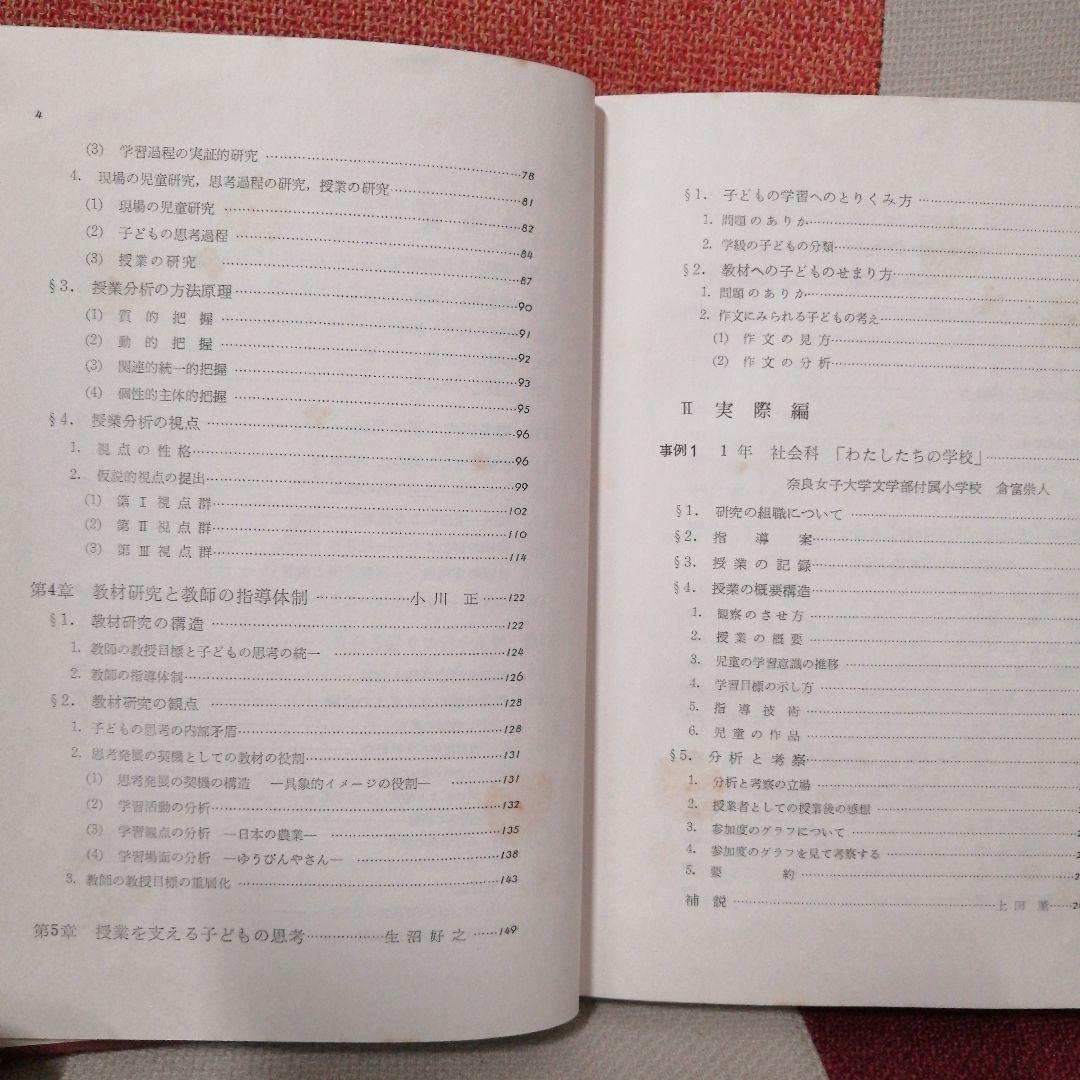 4
(3) 学習過程の実証的研究 ……78
4. 現場の児童研究，思考過程の研究，授業の研究……81
(1) 現場の児童研究 ……82
(2) 子どもの思考過程 ……84
(3) 授業の研究 ……87
§3. 授業分析の方法原理……90
(1) 質的把握 ……91
(2) 動的把握 ……92
(3) 関連的統一的把握 ……93
(4) 個性的主体的把握 ……95
§4. 授業分析の視点 ……96
1. 視点の性格……96
2. 仮説的視点の提出……99
(1) 第Ⅰ視点群……102
(2) 第Ⅱ視点群……110
(3) 第Ⅲ視点群……114
第4章 教材研究と教師の指導体制 ……小川 正……122
§1. 教材研究の構造 ……122
1. 教師の教授目標と子どもの思考の統一 ……124
2. 教師の指導体制……126
§2. 教材研究の観点 ……128
1. 子どもの思考の内部矛盾……128
2. 思考発展の契機としての教材の役割……131
(1) 思考発展の契機の構造 —具象的イメージの役割— ……131
(2) 学習活動の分析……132
(3) 学習観点の分析 —日本の農業— ……135
(4) 学習場面の分析 —ゆうびんやさん— ……138
3. 教師の教授目標の重層化 ……143
第5章 授業を支える子どもの思考……生沼好之……149
§1. 子どもの学習へのとりくみ方 ……
1. 問題のありか……
2. 学級の子どもの分類……
§2. 教材への子どものせまり方……
1. 問題のありか……
2. 作文にみられる子どもの考え……
(1) 作文の見方……
(2) 作文の分析……
Ⅱ 実際編
事例1 1年 社会科「わたしたちの学校」……
奈良女子大学文学部付属小学校 倉富崇人
§1. 研究の組織について ……
§2. 指導案……
§3. 授業の記録……
§4. 授業の概要構造……
1. 観察のさせ方 ……
2. 授業の概要 ……
3. 児童の学習意識の推移 ……
4. 学習目標の示し方 ……
5. 指導技術 ……
6. 児童の作品 ……
§5. 分析と考察……
1. 分析と考察の立場 ……
2. 授業者としての授業後の感想 ……
3. 参加度のグラフについて ……
4. 参加度のグラフを見て考察する ……
5. 要約 ……
補説 ……上田 薫……